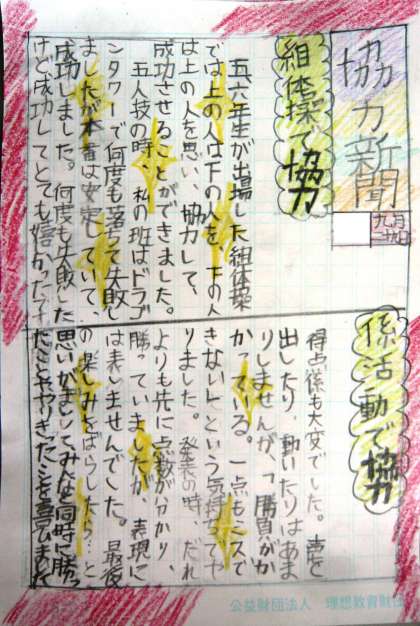 協力新聞
九月
組体操で協力
五、六年生が出場した組体操
では上の人は下の人を、下の人
は上の人を思い、協力して、
成功させることができました。
五人技の時、私の班はドラゴ
ンタワーで何度も落ちて失敗し
ましたが本番は安定していて、
成功しました。何度も失敗した
けど成功してとても嬉かったです
係活動で協力
得点係も大変でした。声を
出したり、動いたりはあま
りしませんが、「勝負がか
かっている。一点もミスで
きない」という気持ちでや
りました。発表の時、だれ
よりも先に点数が分かり、
勝っていましたが、表現に
は表しませんでした。最後
の楽しみをばらしたら…と
思いがまんしてみんな同時に勝っ
たことややりきったことを喜びました
公益財団法人 理想教育財団